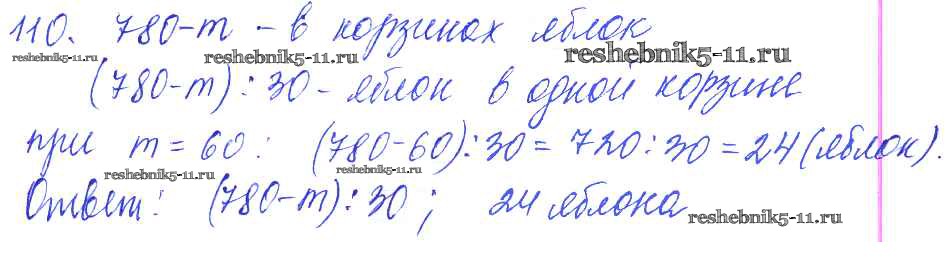 110. 780-m - в корзинах яблок
reshebnik5-11.ru reshebnik5-11.ru reshebnik5-11.ru
(780-m):30 - яблок в одной корзине
при m = 60: (780-60):30 = 720:30 = 24 (яблок).
reshebnik5-11.ru reshebnik5-11.ru
Ответ: (780-m):30; 24 яблока
reshebnik5-11.ru